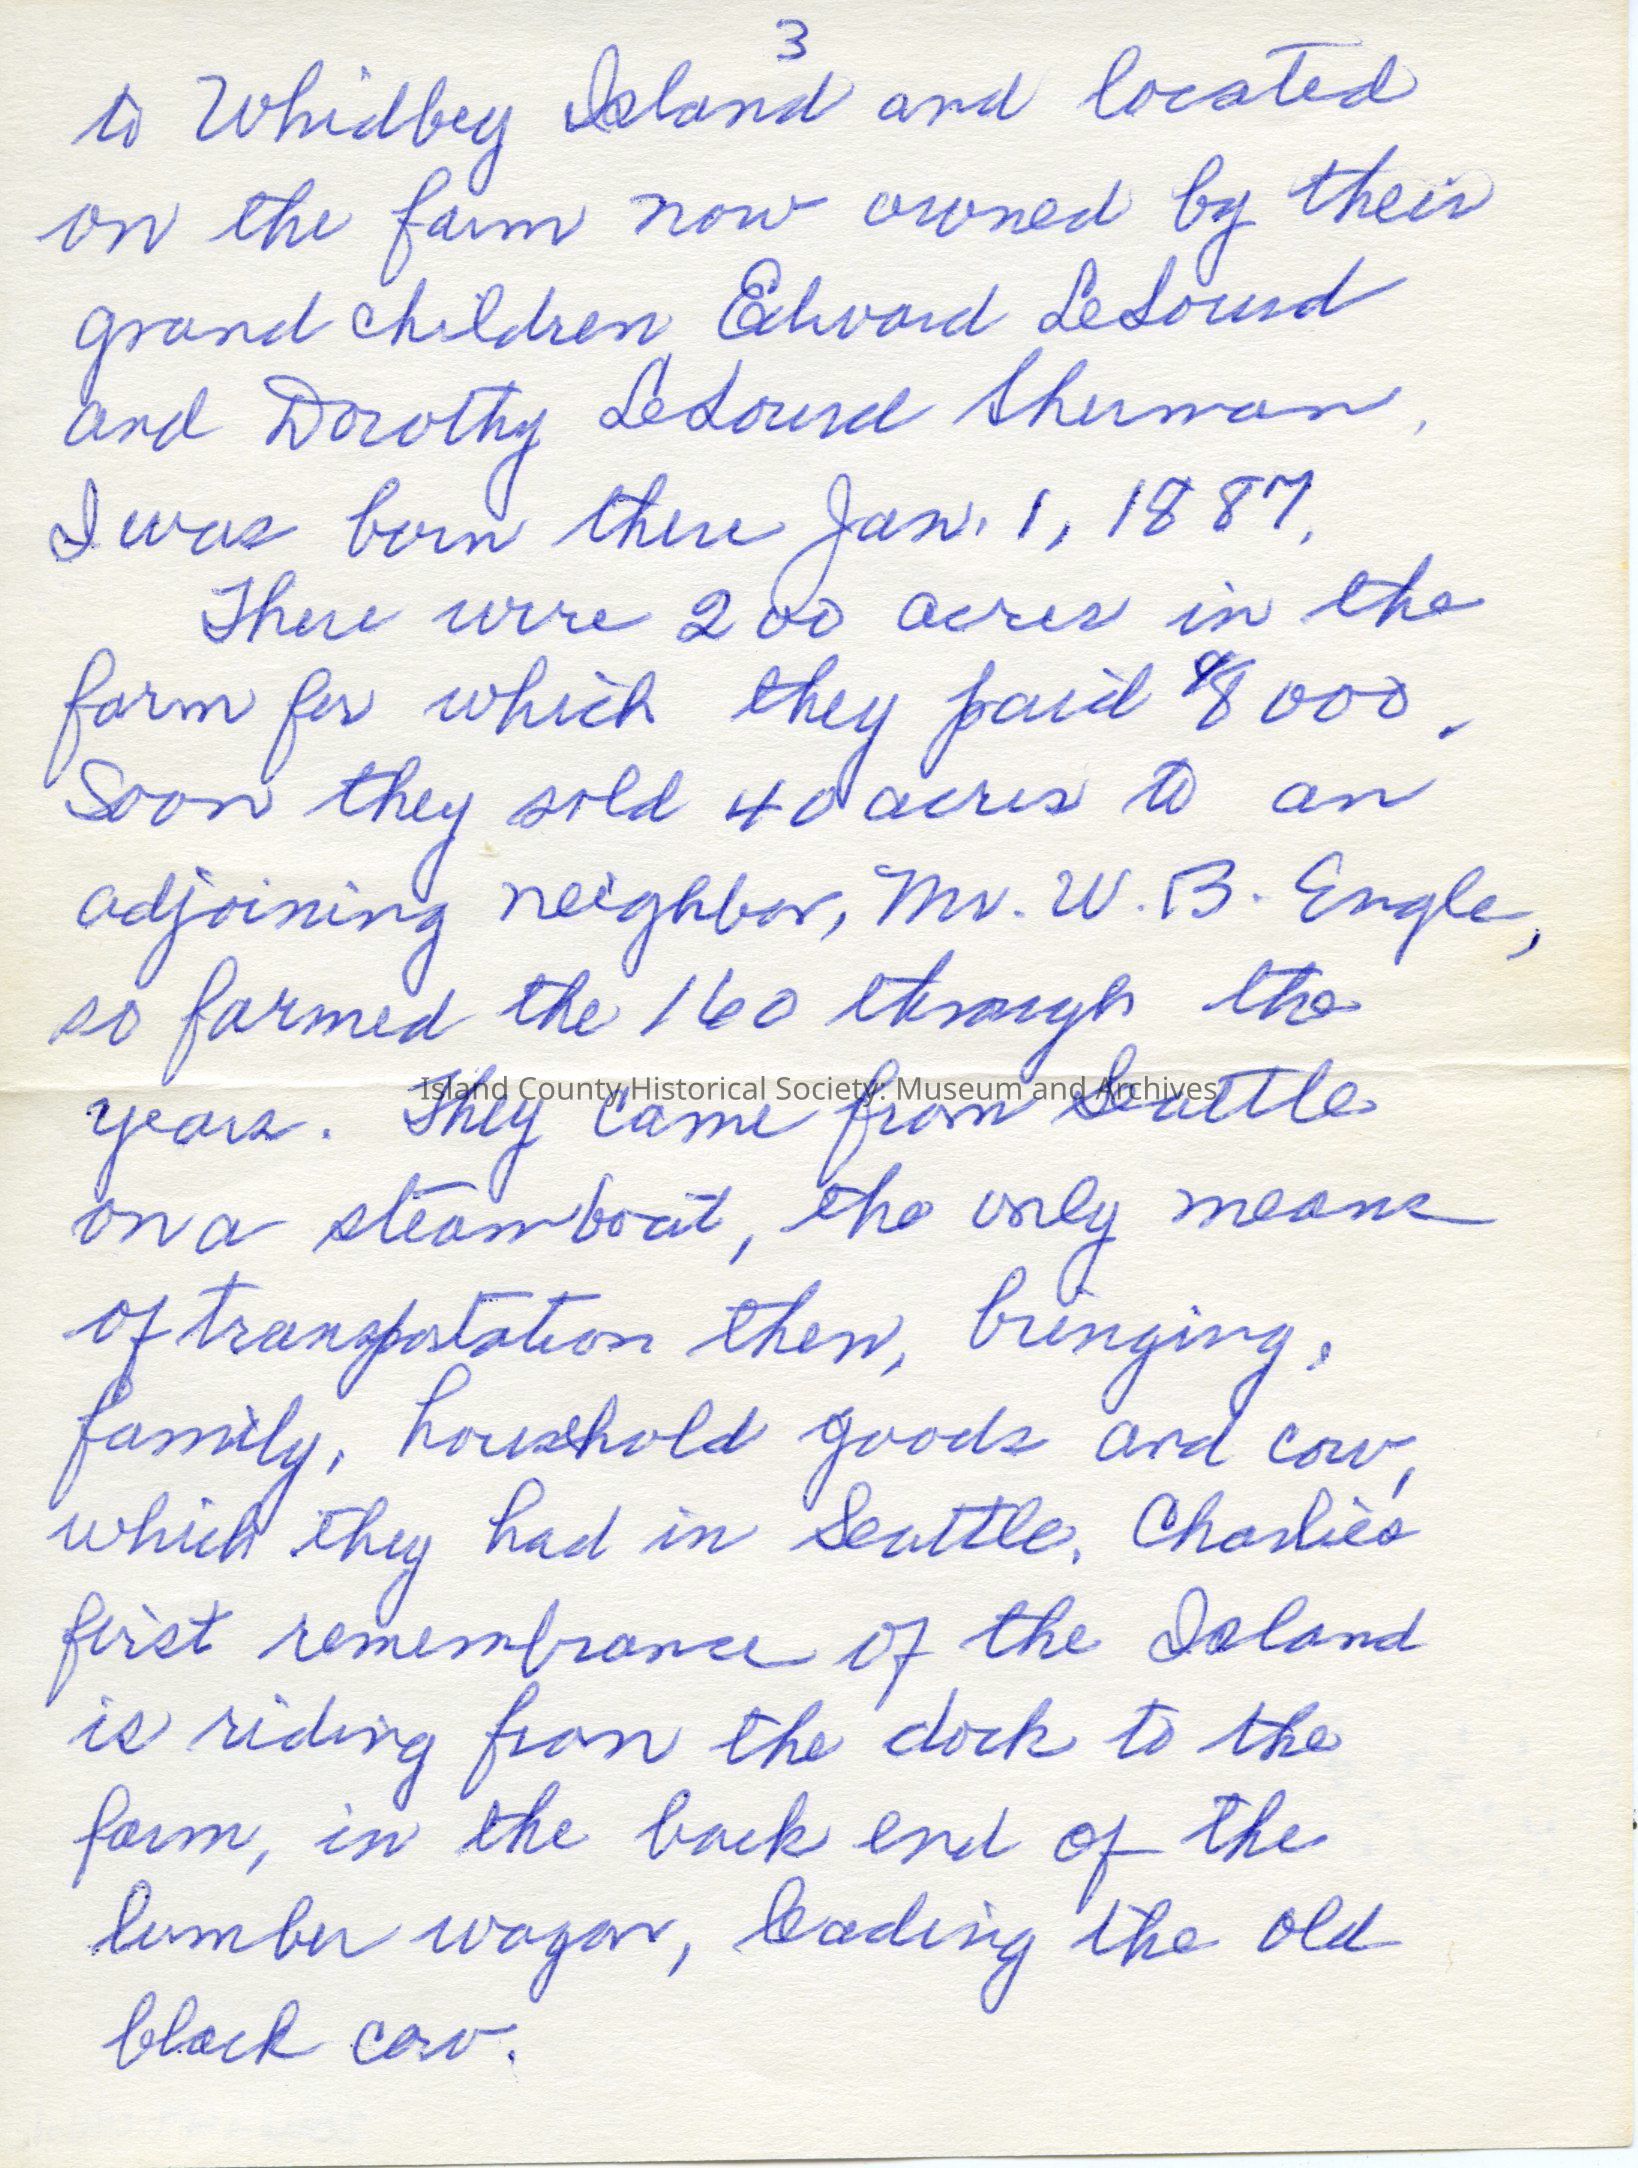 3
to Whidbey Island and located
on the farm now owned by their
grand children Edward LeSourd
and Dorothy LeSourd Sherman.
I was born there Jan. 1, 1887.
There were 200 acres in the
farm for which they paid $8000.
Soon they sold 40 acres to an
adjoining neighbor, Mr. W. B. Engle,
so farmed the 160 through the
Island County Historical Society: Museum and Archives
years. They came from Seattle
on a steamboat, the only means
of transportation then, bringing,
family, household goods and cow,
which they had in Seattle. Charlie's
first remembrance of the Island
is riding from the dock to the
farm, in the back end of the
lumber wagon, leading the old
black cow.